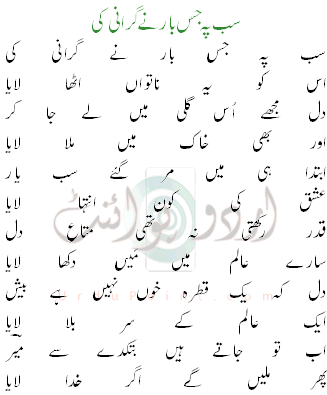 سب پہ جس بار نے گرانی کی
سب پہ جس بار نے گرانی کی
اس کو یہ ناتواں اٹھا لایا
دل مجھے اُس گلی میں لے جا کر
اور بھی خاک میں ملا لایا
ابتدا ہی میں مر گئے سب یار
عشق کی کون انتہا لایا
قدر رکھتی نہ تھی متاع دل
سارے عالم میں مَیں دکھا لایا
دل کہ یک قطرہ خوں نہیں ہے بیش
ایک عالم کے سر بلا لایا
اب تو جاتے ہیں بتکدے سے میر
پھر ملیں گے اگر خدا لایا
اردو پوائنٹ